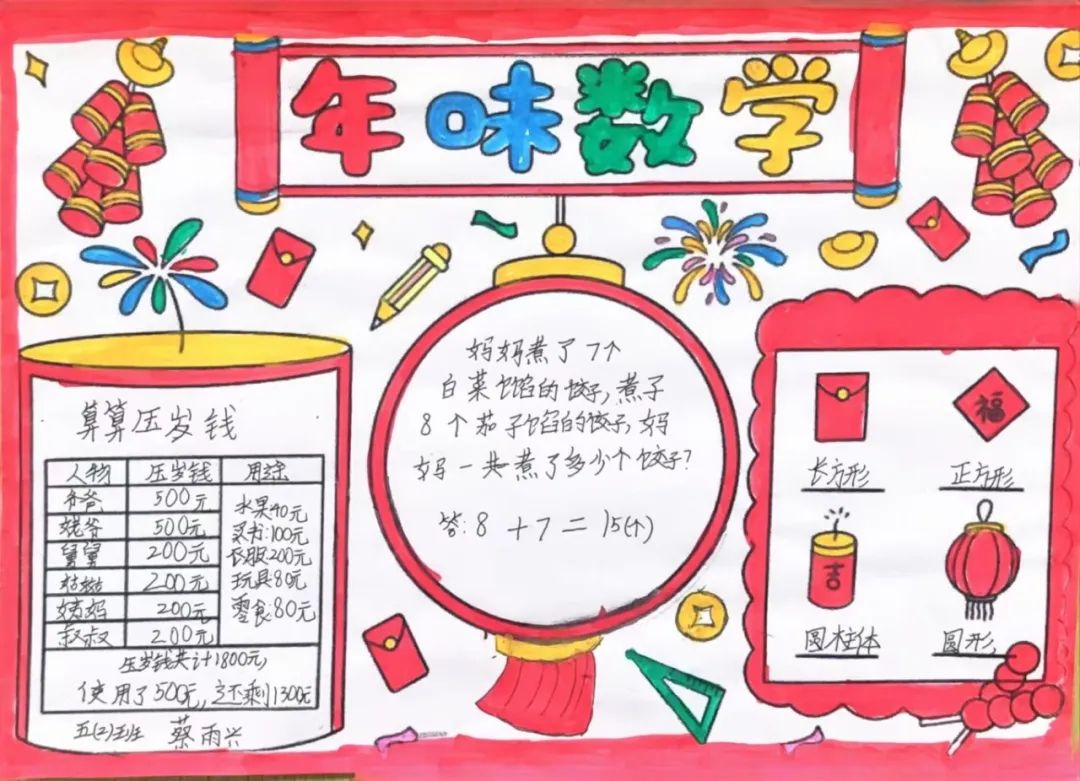 年味数学
算算压岁钱
人物 压岁钱 用途
爷爷 500元
姥爷 500元
舅舅 200元
姑姑 200元
姨妈 200元
叔叔 200元
水果40元
买书:100元
衣服200元
玩具80元
零食:80元
压岁钱共计1800元,
使用了500元,还剩1300元
五(二)班 蔡雨兴
妈妈煮了7个
白菜馅的饺子,煮了
8个茄子馅的饺子,妈
妈一共煮了多少个饺子?
答:8+7=15(个)
福
长方形 正方形
吉
圆柱体 圆形